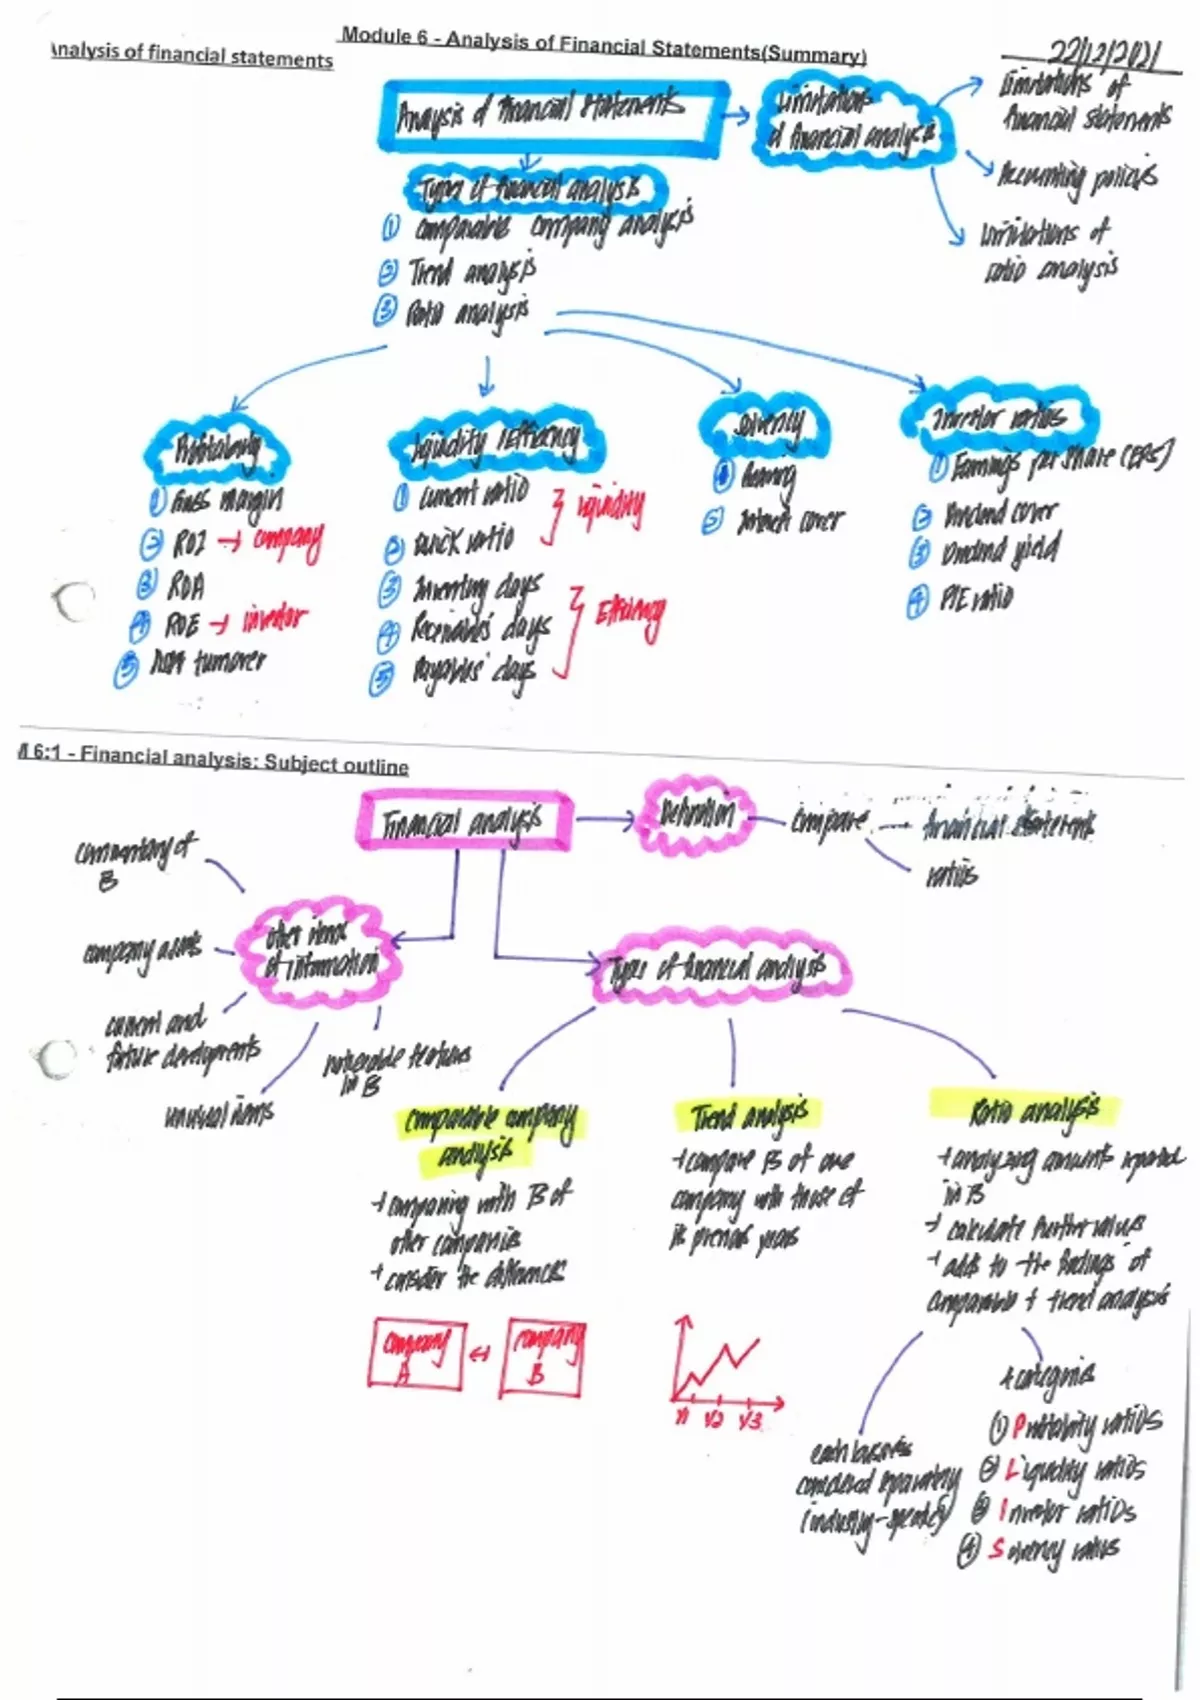 Analysis of financial statements
Module 6 - Analysis of Financial Statements(Summary)
22/12/2021
Analysis of financial statements
Limitations
of financial analysis
limitations of
financial statements
Accounting policies
Limitations of
ratio analysis
Types of financial analysis
① comparable company analysis
② Trend analysis
③ Ratio analysis
Profitability
① Gross margin
② ROI → company
③ ROA
④ ROE → investor
⑤ turnover
Liquidity / Efficiency
① current ratio
② Quick ratio
liquidity
③ Inventory days
④ Receivables' days
⑤ Payables' days
Efficiency
Solvency
① Gearing
② Interest cover
Investor ratios
① Earnings per share (EPS)
② Dividend cover
③ Dividend yield
④ P/E ratio
M 6:1 - Financial analysis: Subject outline
Financial analysis
Definition
compare
financial statements
ratios
commentary of
B
company assets
current and
future developments
unusual items
noticeable features
in B
other items
of information
Types of financial analysis
comparable company
analysis
→ comparing with B of
other companies
→ consider the differences
company
A
↔
company
B
Trend analysis
→ compare B of one
company with those of
its previous years
Y1 Y2 Y3
Ratio analysis
→ analyzing amounts reported
in B
→ calculate further values
→ adds to the findings of
comparable + trend analysis
each business
considered separately
(industry-specific)
4 categories
① Profitability ratios
② Liquidity ratios
③ Investor ratios
④ Solvency ratios